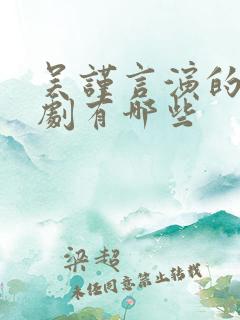 吴謹言演的
劇有哪些
梁超
未经同意禁止转载